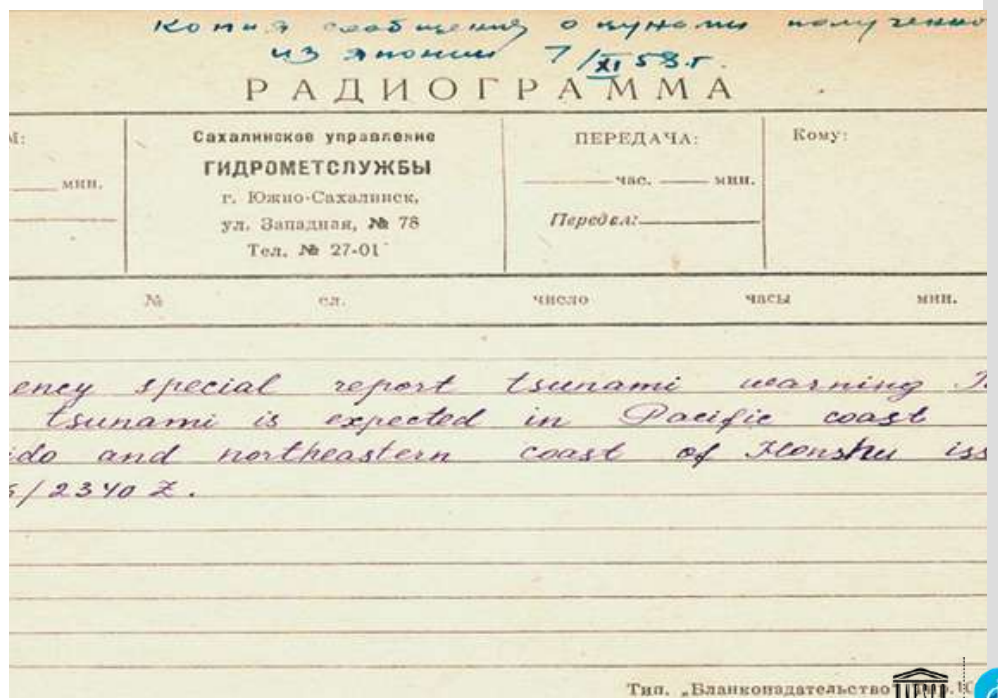 Копия сообщения о цунами полученно
из Японии 7/XI 58 г.
РАДИОГРАММА
М:
мин.
Сахалинское управление
ГИДРОМЕТСЛУЖБЫ
г. Южно-Сахалинск,
ул. Западная, № 78
Тел. № 27-01
ПЕРЕДАЧА:
час. мин.
Передал:
Кому:
№ сл. число часы мин.
ency special report tsunami warning
tsunami is expected in Pacific coast
ido and northeastern coast of Honshu iss
6/2340 Z.
Тип. „Бланкоиздательство"